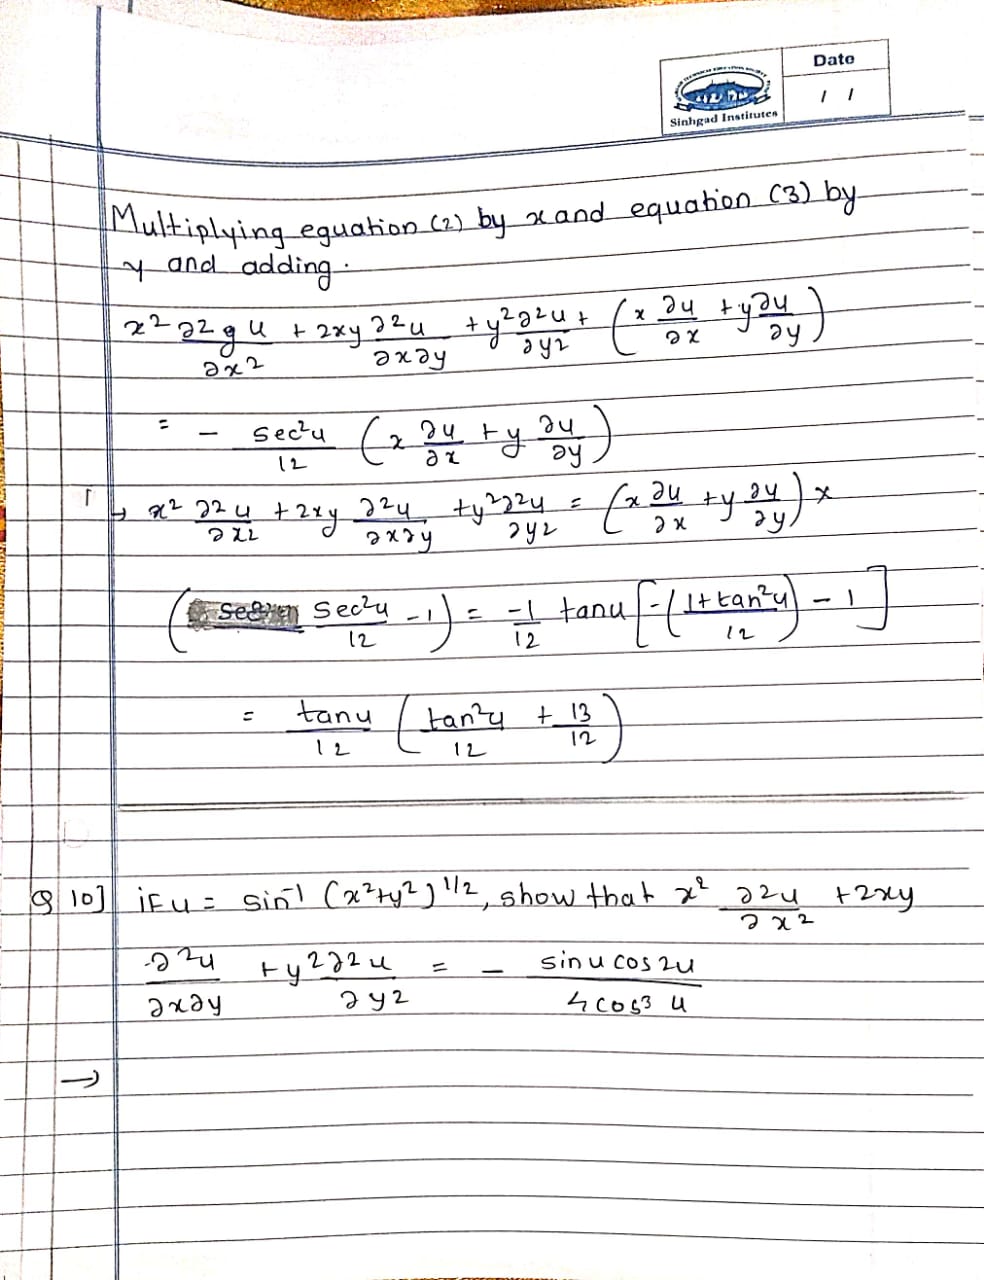 Date
/ /
Sinhgad Institutes
Multiplying equation (2) by x and equation (3) by
y and adding.
x² ∂2 u/∂x2 + 2xy ∂²u/∂x∂y + y²∂²u/∂y2 + (x ∂u/∂x + y∂u/∂y)
= - sec²u/12 (x ∂u/∂x + y ∂u/∂y)
↳ x² ∂2u/∂x2 + 2xy ∂²u/∂x∂y + y²∂2u/∂y2 = (x ∂u/∂x + y ∂u/∂y) x
(sec²u/12 - 1) = -1/12 tanu [-(1+tan²u/12) - 1]
= tanu/12 (tan²u/12 + 13/12)
Q 10] if u = sin⁻¹ (x²+y²)^1/2, show that x² ∂2u/∂x2 + 2xy
∂²u/∂x∂y + y2∂2u/∂y2 = - sinu cos2u/4cos³u
→